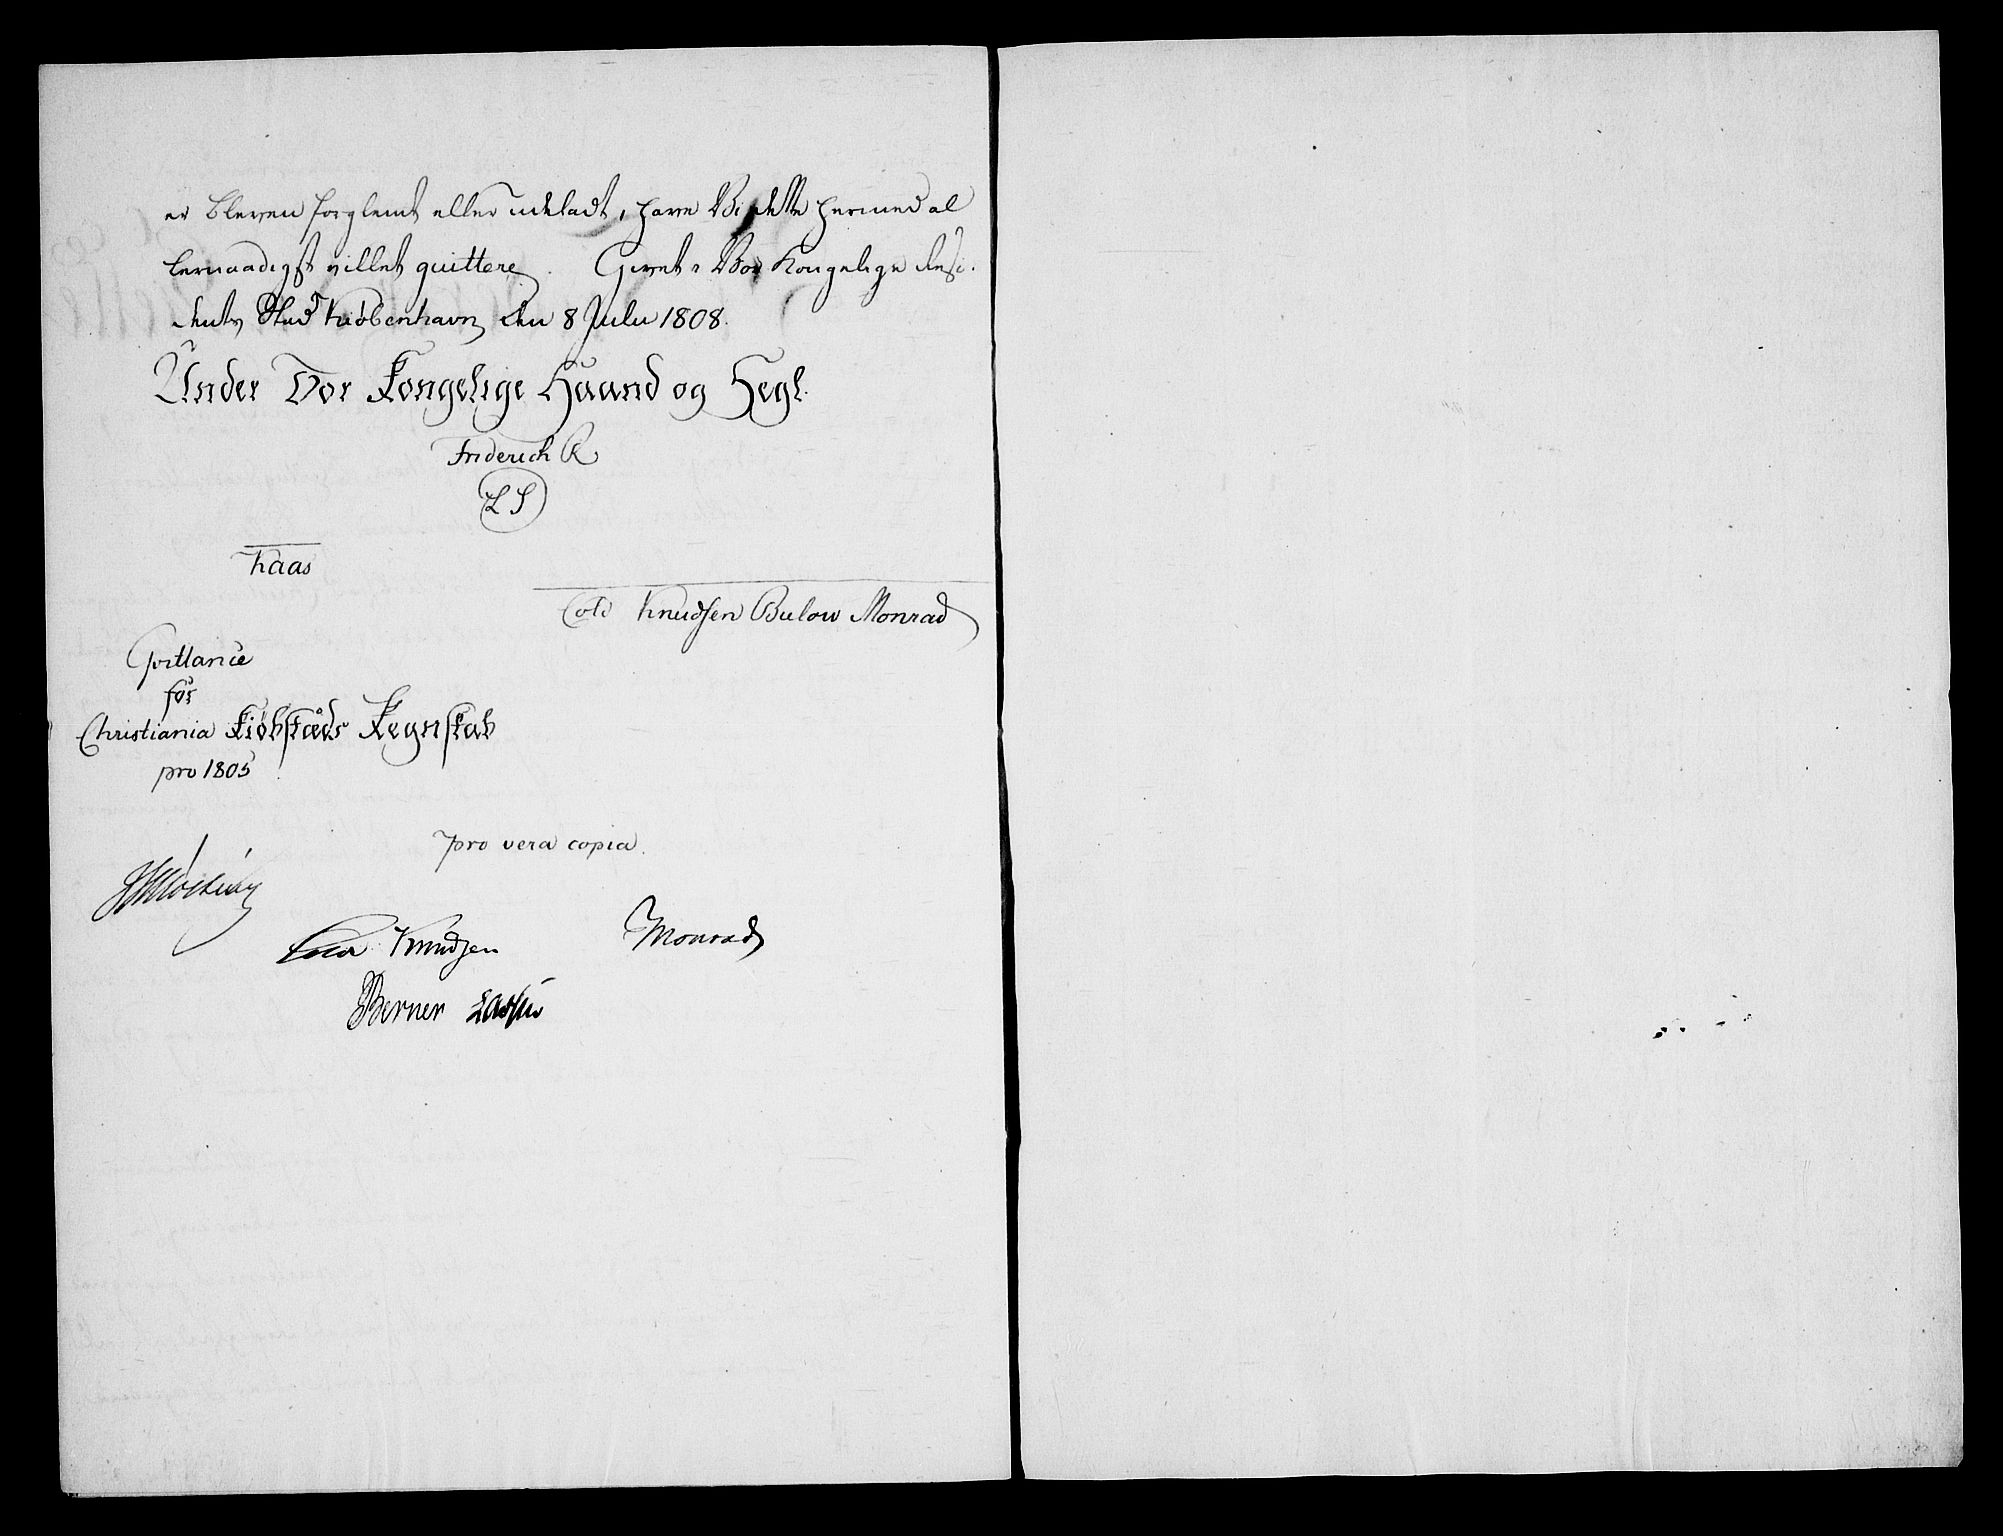 er bleven forglemt eller udeladt, have Vi dette hermed al
lernaadigst villet quittere. Givet i Vor Kongelige Resi-
dents Stad Kiøbenhavn den 8 Julii 1808.
Under Vor Kongelige Haand og Segl.
Friderich R
L S
Kaas
Cold Knudsen Bulow Monrad
Qvittance
for
Christiania Kiøbstæds Regnskab
pro 1805
pro vera copia.
Knudsen Monrad
Berner Lassen